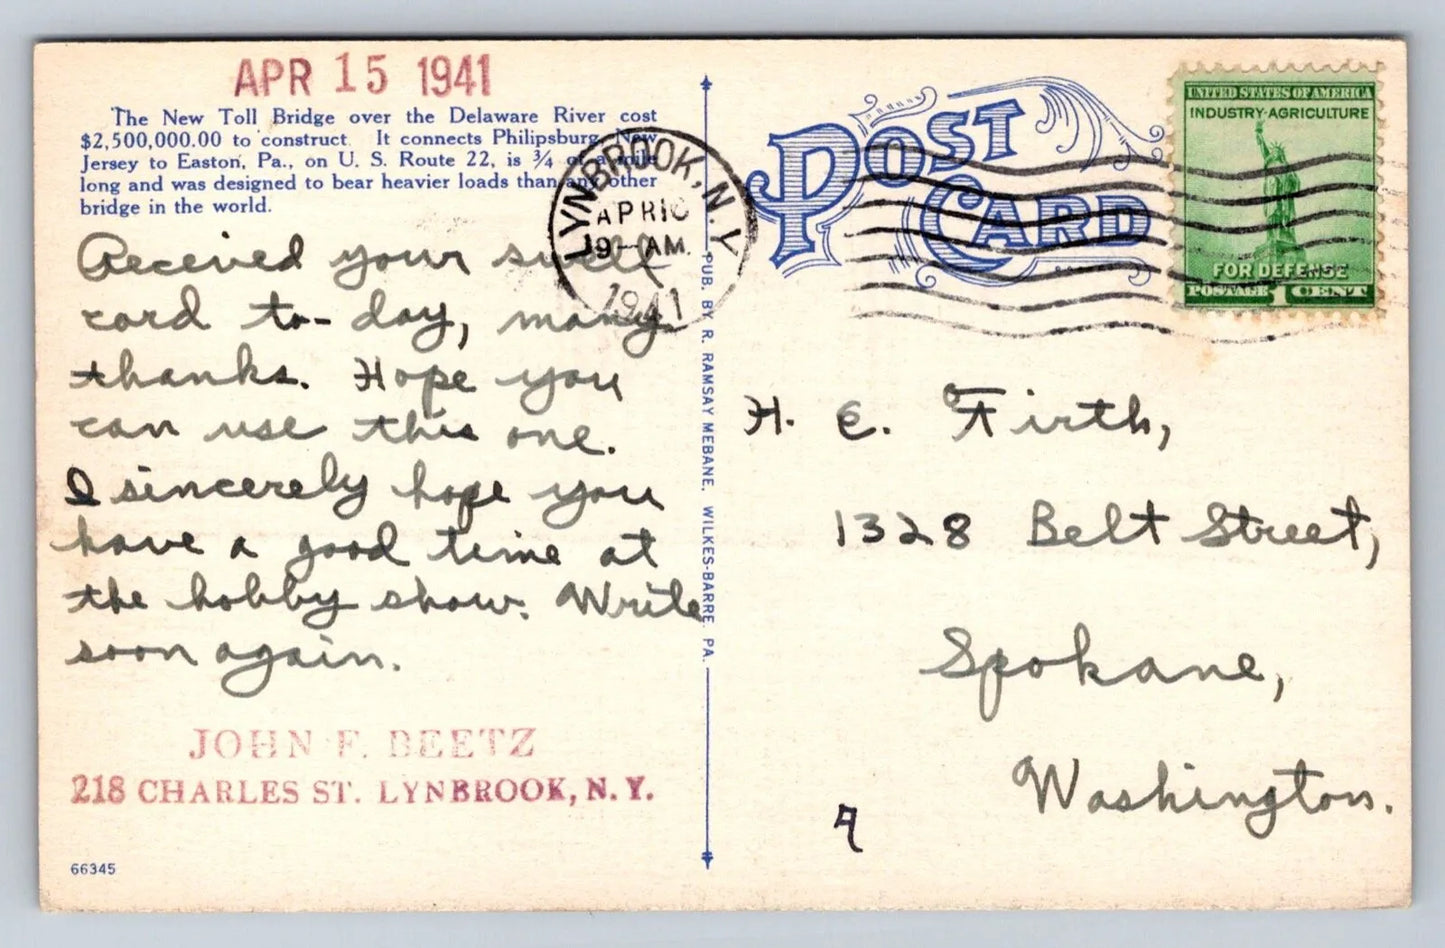 APR 15 1941
The New Toll Bridge over the Delaware River cost
$2,500,000.00 to construct. It connects Philipsburg, New
Jersey to Easton, Pa., on U. S. Route 22, is ¾ of a mile
long and was designed to bear heavier loads than any other
bridge in the world.
Received your swell
card to-day, many
thanks. Hope you
can use this one.
I sincerely hope you
have a good time at
the hobby show. Write
soon again.
JOHN F. BEETZ
218 CHARLES ST. LYNBROOK, N. Y.
66345
LYNBROOK, N.Y.
APR 16
9-AM.
1941
PUB. BY R. RAMSAY MEBANE, WILKES-BARRE, PA.
POST CARD
UNITED STATES OF AMERICA
INDUSTRY·AGRICULTURE
FOR DEFENSE
POSTAGE 1 CENT
H. E. Firth,
1328 Belt Street,
Spokane,
Washington.